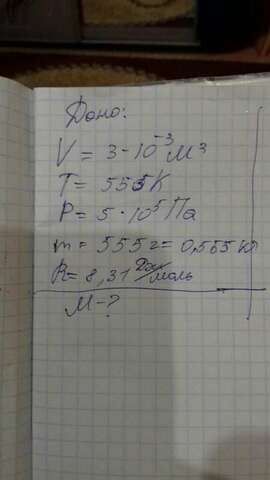 Дано:
V = 3·10⁻³ м³
T = 555 К
P = 5·10⁵ Па
m = 555 г = 0,555 кг
R = 8,31 Дж/моль
M - ?